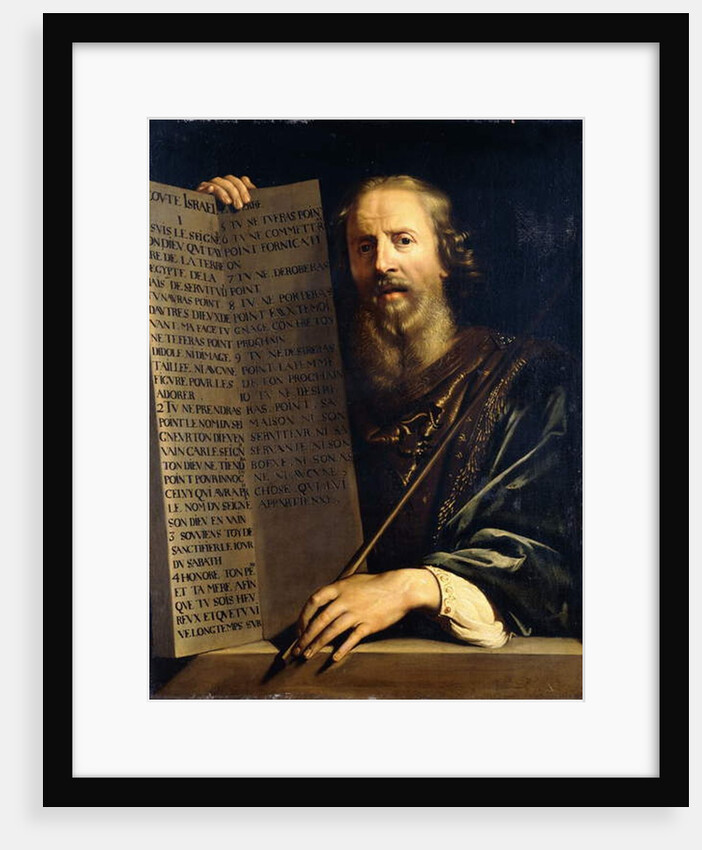 COVTE ISRAEL
I
SVIS LE SEIGNE
ON DIEV QVI TAY
RE DE LA TERRE
EGYPTE DE LA
AIS DE SERVITVD
V NAVRAS POINT
DAVTRES DIEVX DE
VANT MA FACE TV
NE TE FERAS POINT
DIDOLE NI DIMAGE
TAILLEE NI AVCVNE
FIGVRE POVR LES
ADORER
2 TV NE PRENDRAS
POINT LE NOM DV SEI
GNEVR TON DIEV EN
VAIN CAR LE SEIGN
TON DIEV NE TIEND
POINT POVR INNOC
CELVY QVI AVRA PR
LE NOM DV SEIGNE
SON DIEV EN VAIN
3 SOVVIENS TOY DE
SANCTIFIER LE IOVR
DV SABATH
4 HONORE TON PE
ET TA MERE AFIN
QVE TV SOIS HEV
REVX ET QVE TV VI
VE LONGTEMPS SVR
TERRE
5 TV NE TVERAS POIN
6 TV NE COMMETTR
POINT FORNICATI
ON
7 TV NE DEROBERAS
POINT
8 TV NE PORTERAS
POINT FAVX TEMOI
GNAGE CONTRE TON
PROCHAIN
9 TV NE DESIRERAS
POINT LA FEMME
DE TON PROCHAIN
10 TV NE DESIRE
RAS POINT SA
MAISON NI SON
SERVITEVR NI SA
SERVANTE NI SON
BOEVF NI SON AS
NE NI AVCVNE
CHOSE QVI LVI
APPARTIENNE